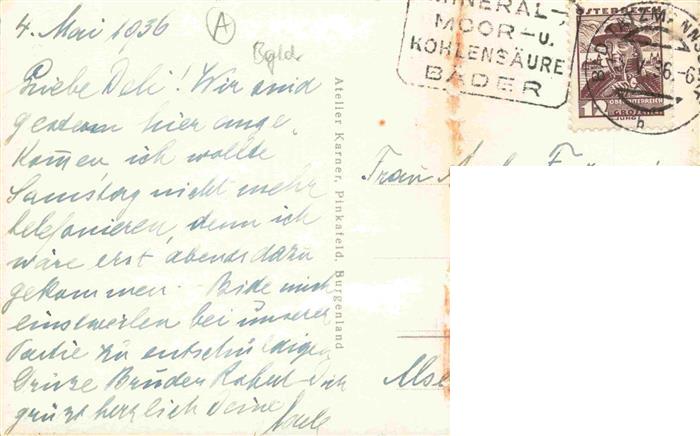 4. Mai 1936
A
Bgld.
Liebe Deli! Wir sind
gestern hier ange-
komen ich wollte
Samstag nicht mehr
telefonieren, denn ich
wäre erst abends dazu
gekommen. Bitte mich
einstweilen bei unserer
Partie zu entschuldigen
Grüsse Bruder Robert Dich
grüsst herzlich Deine
Adele
Atelier Karner, Pinkafeld, Burgenland
MINERAL-
MOOR-u.
KOHLENSÄURE
BÄDER
ÖSTERREICH
OBERÖSTERREICH
12 GROSCHEN
BAD TATZMANNSDORF
b
Frau